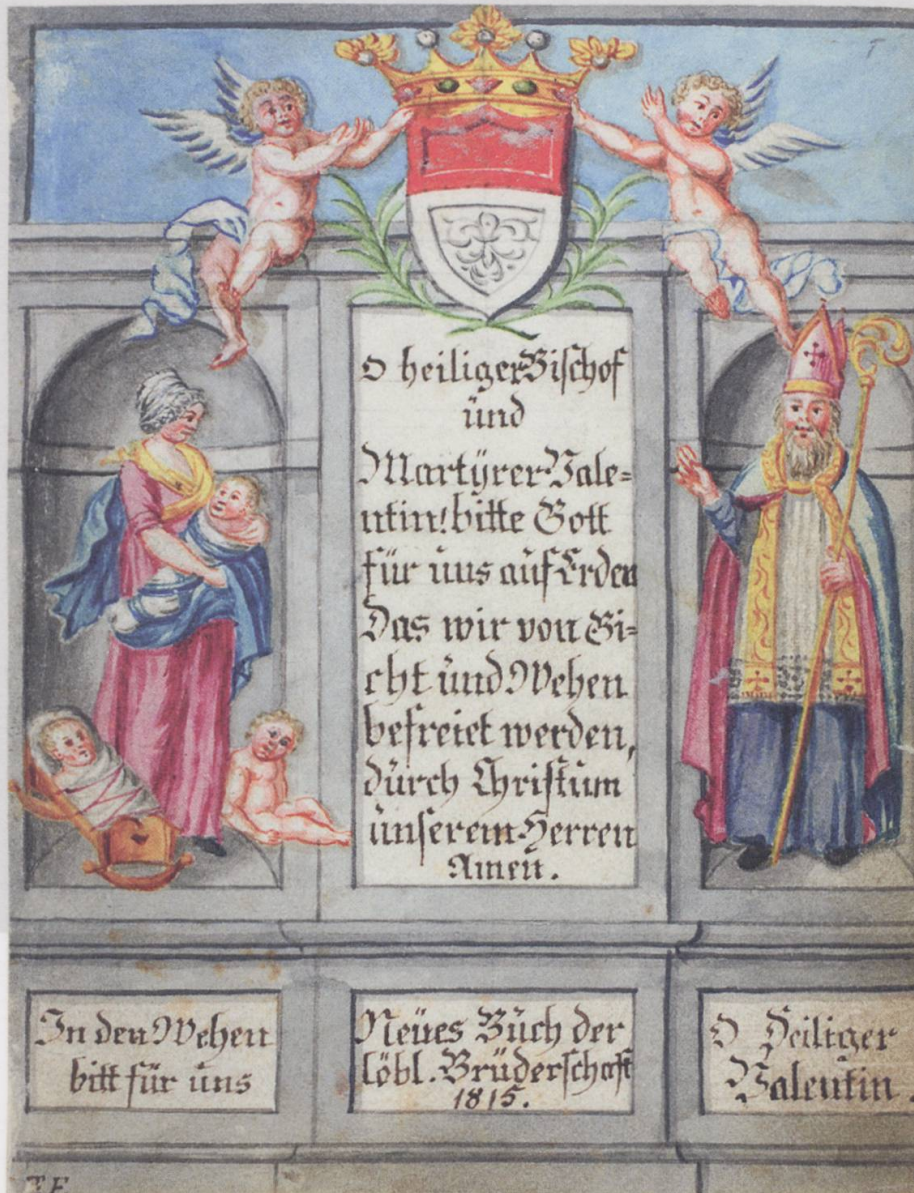 O heiliger Bischof
und
Martÿrer Vale=
ntin! bitte Gott
für uns auf Erden
Das wir von Gi=
cht und Wehen
befreiet werden,
durch Christum
unserem Herren
Amen.
In den Wehen
bitt für uns
Neües Buch der
löbl. Bruderschaft
1815.
O Heiliger
Valentin.